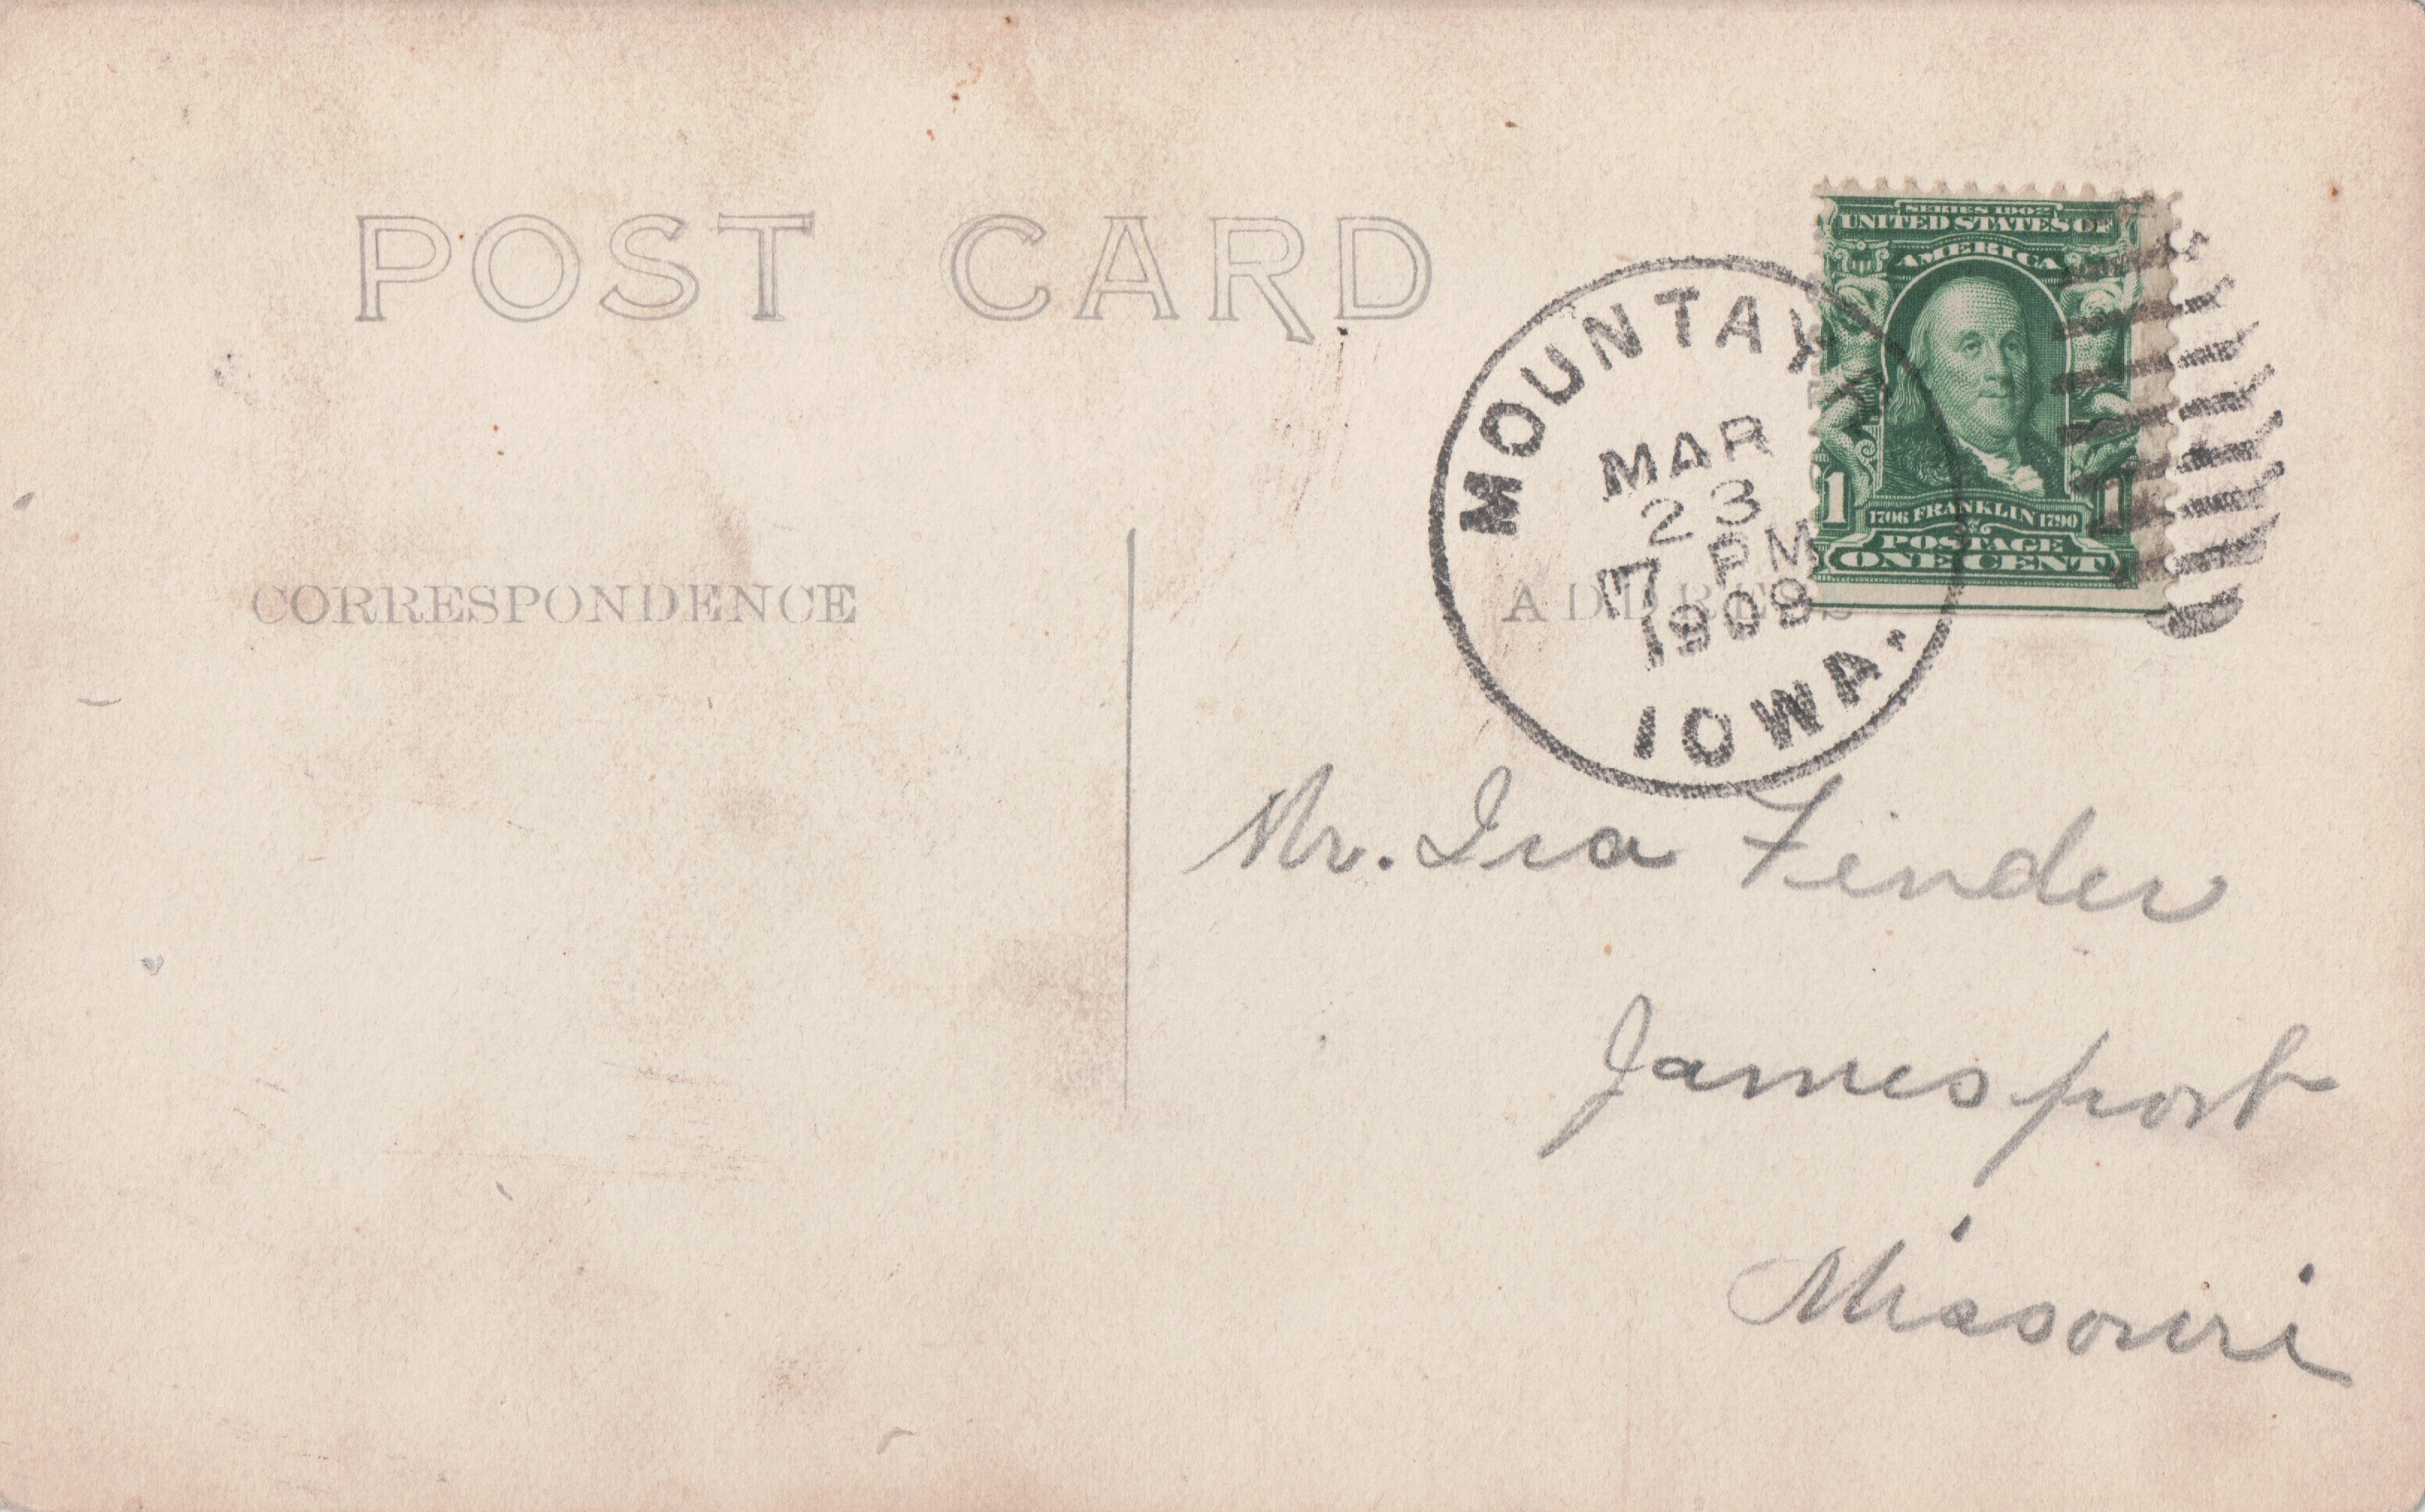 POST CARD
SERIES 1902
UNITED STATES OF
AMERICA
1 1706 FRANKLIN 1790 1
POSTAGE
ONE CENT
MOUNT AYR
MAR
23
7 PM
1908
IOWA.
CORRESPONDENCE
ADDRESS
Mr. Ira Fender
Jamesport
Missouri